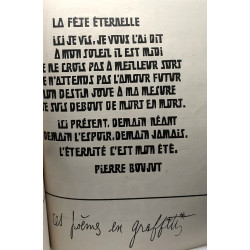 LA FÊTE ÉTERNELLE
ICI JE VIS, JE VOUS L'AI DIT
À MON SOLEIL IL EST MIDI
JE NE CROIS PAS À MEILLEUR SORT
JE N'ATTENDS PAS L'AMOUR FUTUR
MON DESTIN JOUE À MA MESURE
JE SUIS DEBOUT DE MORT EN MORT.
ICI PRÉSENT, DEMAIN NÉANT
DEMAIN L'ESPOIR, DEMAIN JAMAIS.
L'ÉTERNITÉ C'EST MON ÉTÉ.
PIERRE BOUJUT
ces poèmes en graffiti